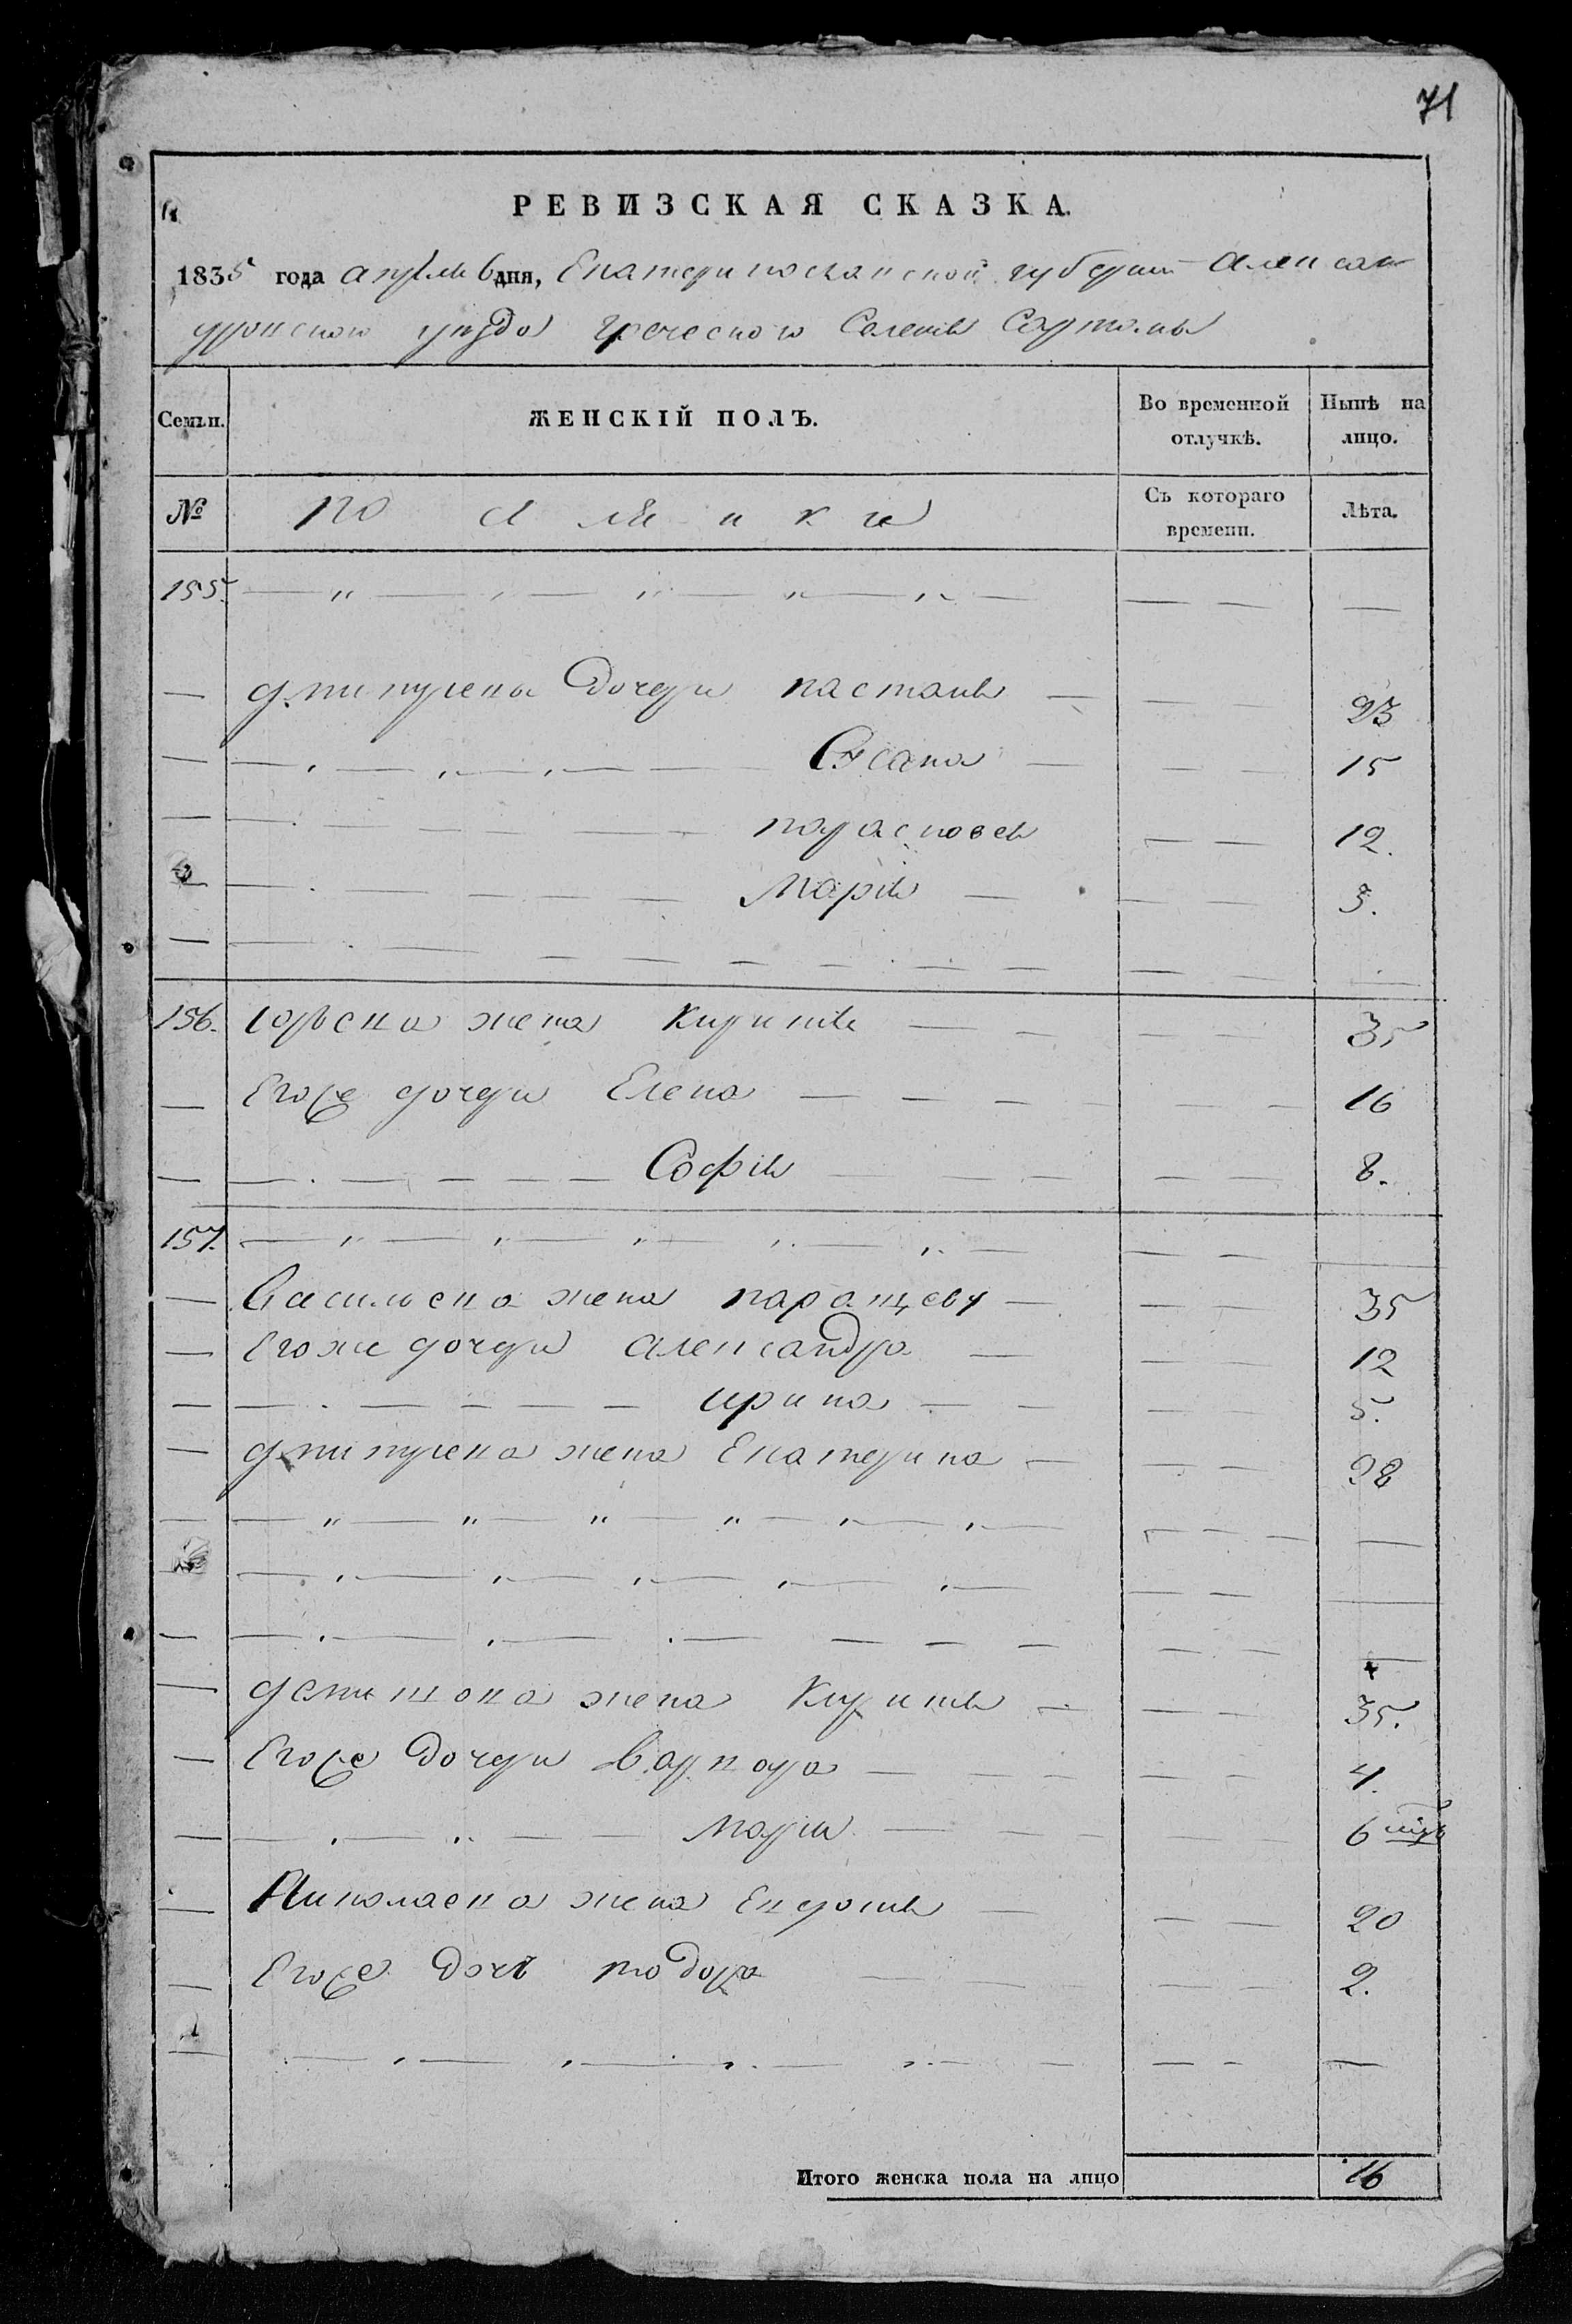 71
РЕВИЗСКАЯ СКАЗКА.
1835 года апреля 6 дня, Екатеринославской губернии Алексан
дровского уезда греческого Селенія Сартаны
Семьи. ЖЕНСКІЙ ПОЛЪ. Во временной отлучкѣ. Нынѣ на лицо.
№ Съ котораго времени. Лѣта.
155.
дмитриевы дочери настасія 23
Оксана 15
парасковея 12.
Марія 3.
156. юрьева жена Кирикія 35
Егоже дочери Елена 16
Софія 8.
157.
Васильева жена паращеву 35
Егоже дочери александра 12
ирина 5.
дмитриева жена Екатерина 28
жена Кирикія 35.
Егоже дочери Варвара 4.
мария 6 мцъ
Николаева жена Евдокія 20
Егоже дочь тодора 2.
Итого женска пола на лицо 16